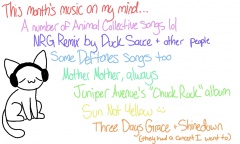 This month's music on my mind...
A number of Animal Collective songs lol
NRG Remix by Duck Sauce + other people
Some Deftones Songs too
Mother Mother, always
Juniper Avenue's "Chuck Rock" album
Sun Not Yellow
Three Days Grace + Shinedown
(they had a concert I went to)